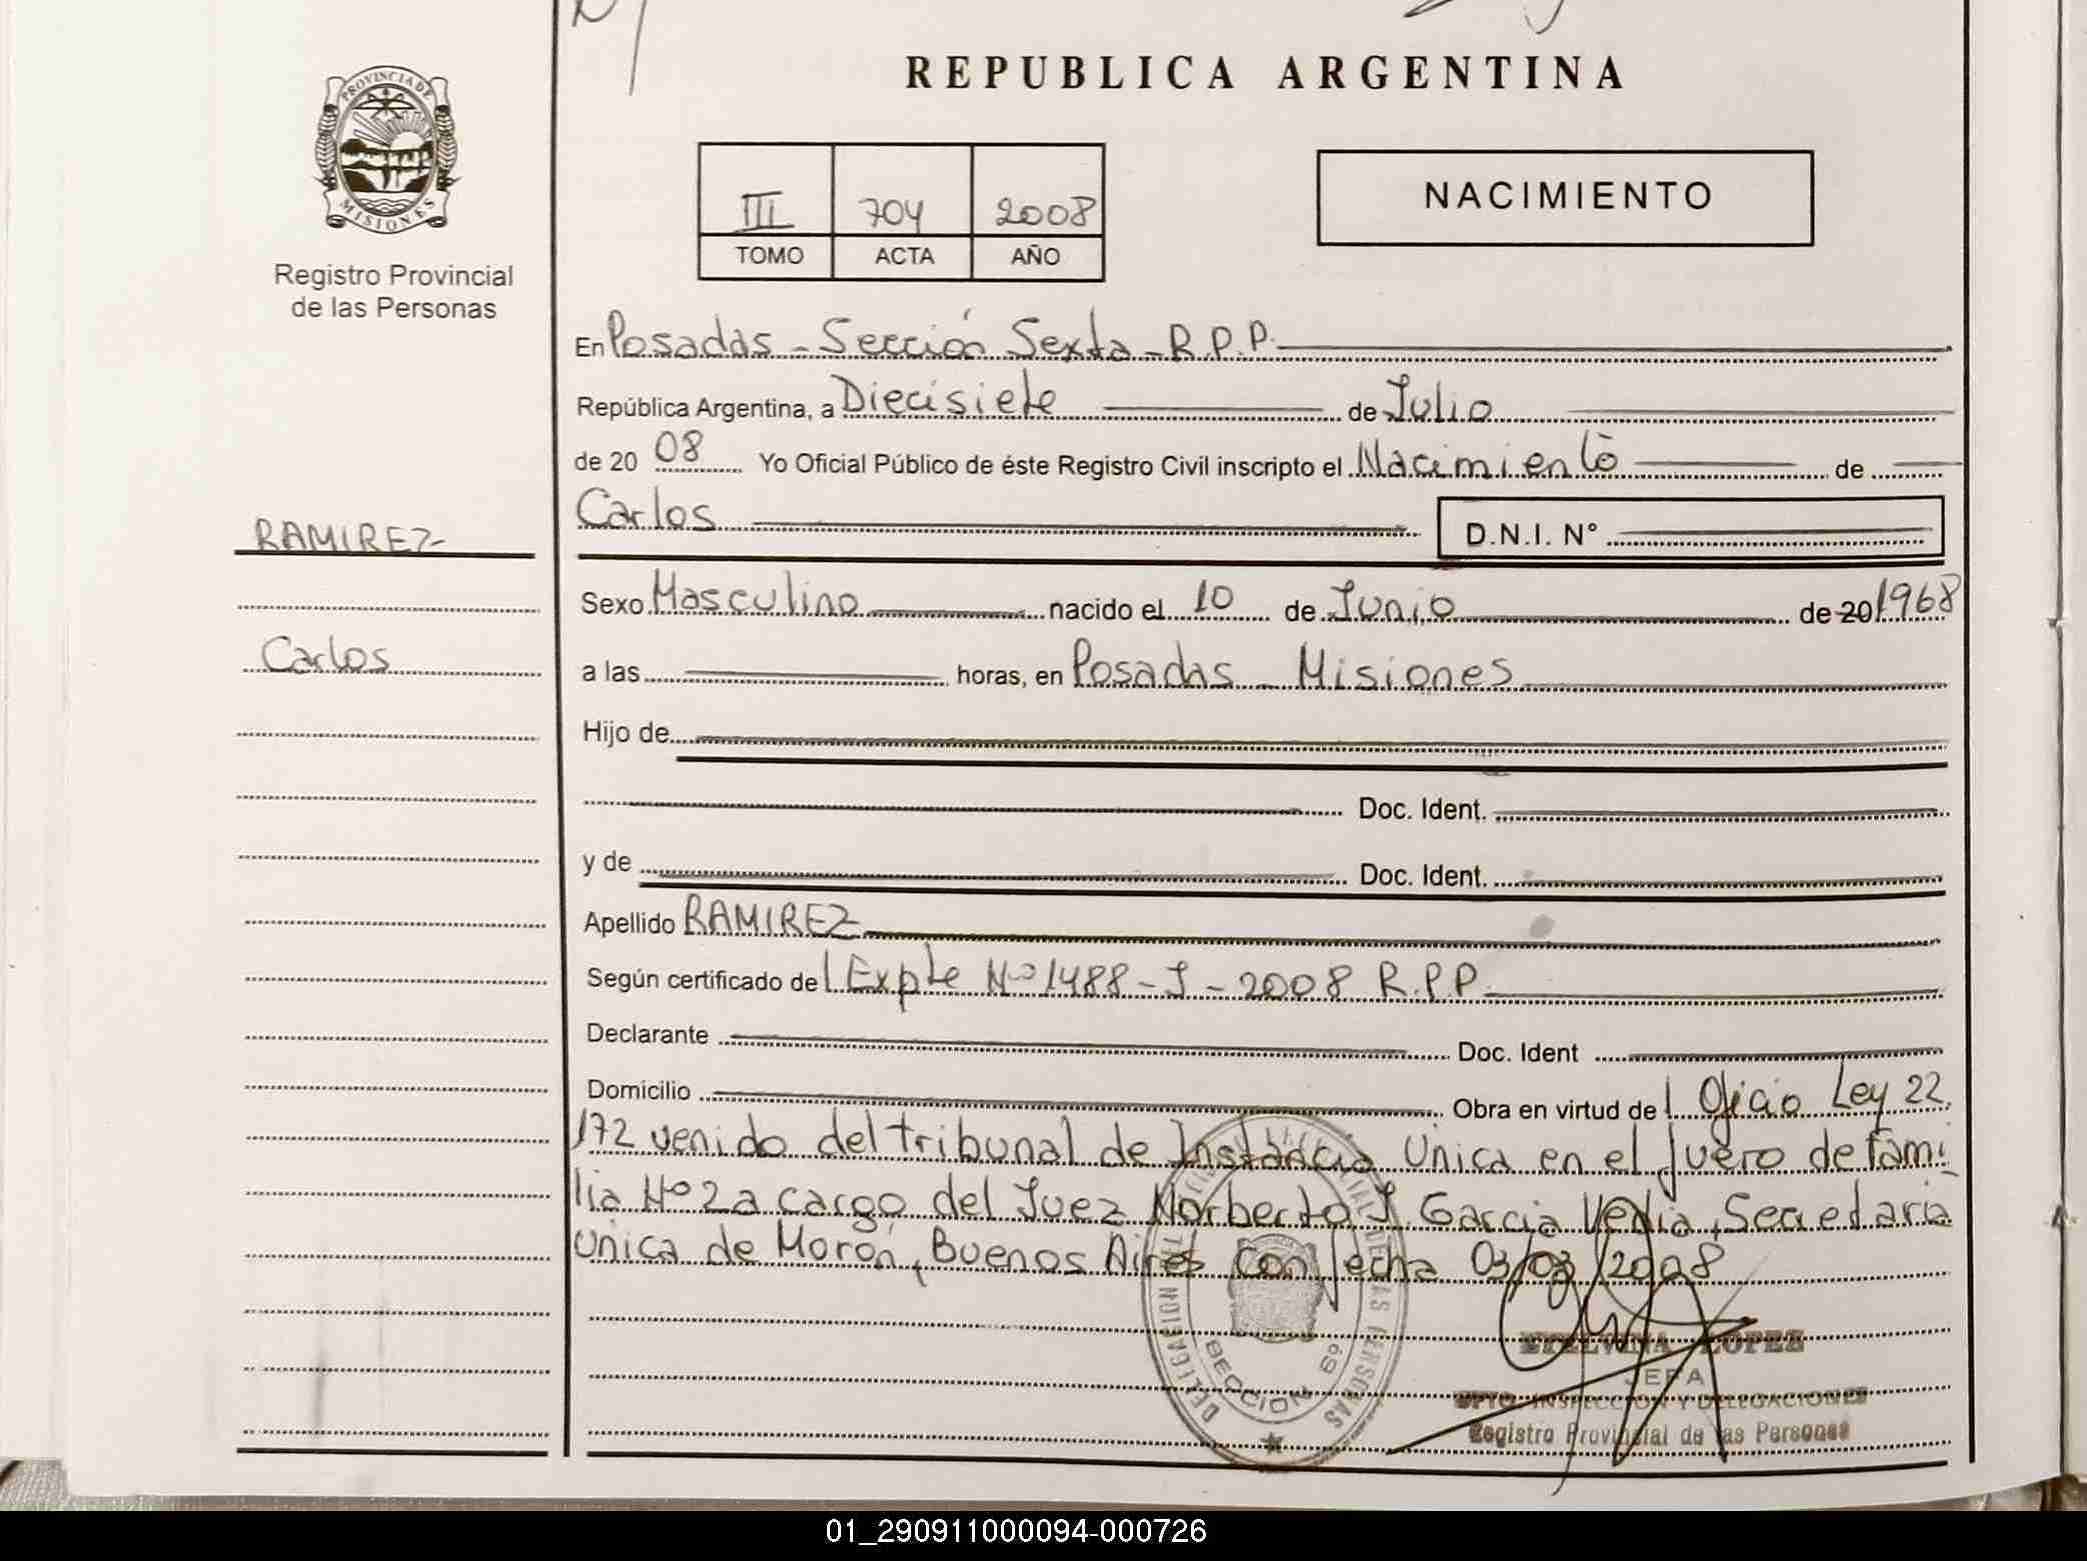 REPUBLICA ARGENTINA
PROVINCIA DE MISIONES
Registro Provincial
de las Personas
III 704 2008
TOMO ACTA AÑO
NACIMIENTO
En Posadas - Sección Sexta - R.P.P.
República Argentina, a Diecisiete de Julio
de 20 08 Yo Oficial Público de éste Registro Civil inscripto el Nacimiento de
Carlos D.N.I. N°
RAMIREZ
Sexo Masculino nacido el 10 de Junio de 20 1968
Carlos
a las horas, en Posadas - Misiones
Hijo de
Doc. Ident.
y de Doc. Ident.
Apellido RAMIREZ
Según certificado del Expte Nº 1488-J-2008 R.P.P.
Declarante Doc. Ident
Domicilio Obra en virtud del Oficio Ley 22.
172 venido del tribunal de Instancia Unica en el fuero de fami
lia Nº 2 a cargo del Juez Norberto J. Garcia Vedia, Secretaria
Unica de Morón, Buenos Aires con fecha 03/03/2008
SECCION 6º
DELEGACION
DE LAS PERSONAS
LOPEZ
JEFA
DPTO. INSPECCION Y DELEGACIONES
Registro Provincial de las Personas
01_290911000094-000726